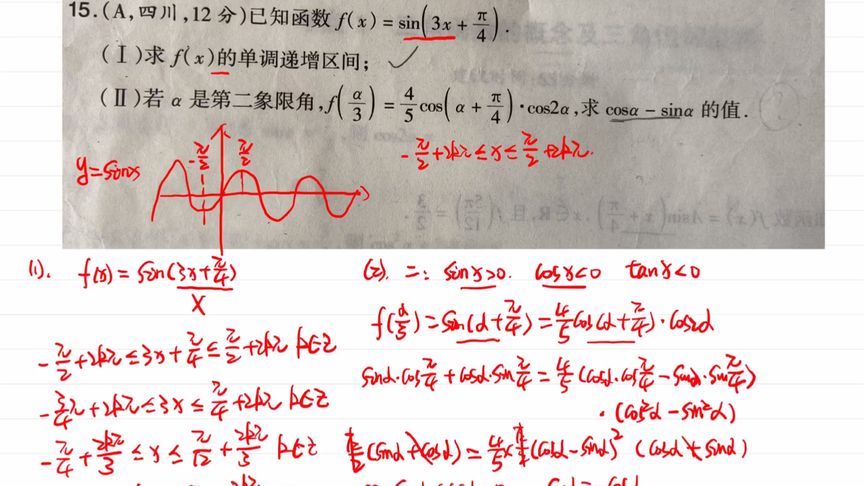 15.(A,四川,12分)已知函数 f(x)=sin(3x+π/4).
(Ⅰ)求 f(x)的单调递增区间;
(Ⅱ)若 α 是第二象限角,f(α/3)=4/5cos(α+π/4)·cos2α,求 cosα-sinα 的值.
y=sinx
-π/2
π/2
-π/2+2kπ≤x≤π/2+2kπ.
(1). f(x)=sin(3x+π/4)
X
-π/2+2kπ≤3x+π/4≤π/2+2kπ k∈Z
-3/4π+2kπ≤3x≤π/4+2kπ k∈Z
-π/4+2kπ/3≤x≤π/12+2kπ/3 k∈Z
(2). 二: sinx>0. cosx<0 tanx<0
f(α/3)=sin(α+π/4)=4/5cos(α+π/4)·cos2α
sinα·cosπ/4+cosα·sinπ/4=4/5(cosα·cosπ/4-sinα·sinπ/4)
·(cos²α-sin²α)
(sinα+cosα)=4/5×(cosα-sinα)²(cosα+sinα)